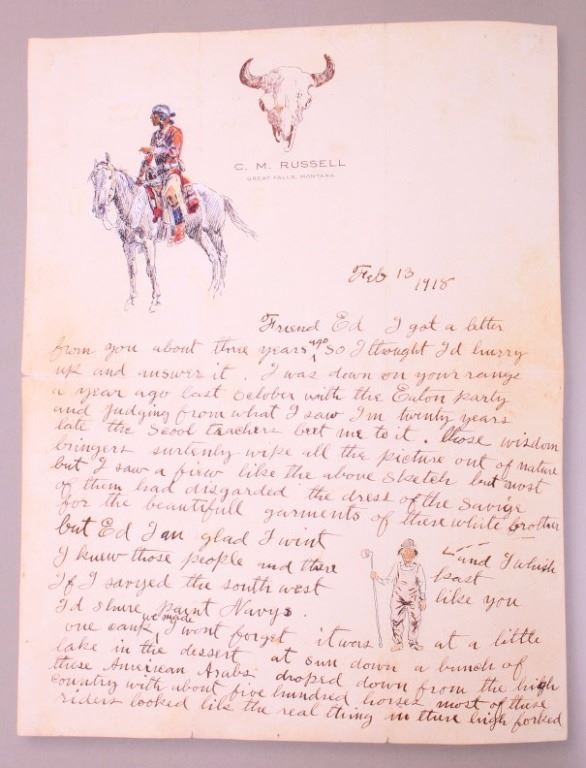 C. M. RUSSELL
GREAT FALLS, MONTANA
Feb 13 1918
Friend Ed I got a letter
from you about three years ago so I thought I'd hurry
up and answer it. I was down on your range
a year ago last october with the Eaton party
and judging from what I saw I'm twenty years
late the Scool teachers beet me to it. those wisdom
bringers surtenly wipe all the picture out of nature
but I saw a fiew like the above sketch but most
of them had disgarded the dress of the Savige
for the beautifull garments of there white brother
but Ed I am glad I wint
I knew those people and there
past
like you
If I savyed the south west
I'd shure paint Navys.
one camp we made I wont forget it was at a little
lake in the dessert at sun down a bunch of
these American Arabs droped down from the high
country with about five hundred horses most of these
riders looked lik the real thing in there high forked